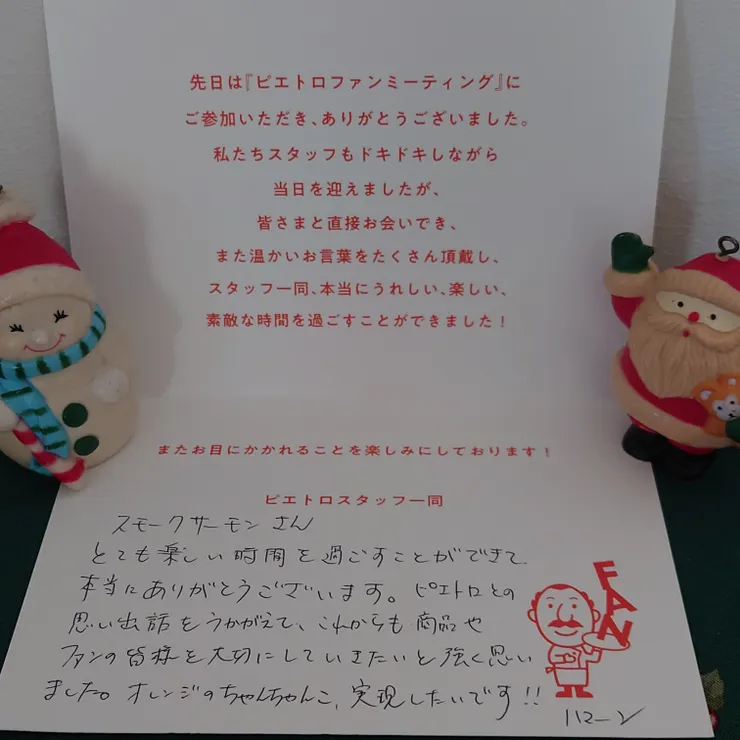 先日は『ピエトロファンミーティング』に
ご参加いただき、ありがとうございました。
私たちスタッフもドキドキしながら
当日を迎えましたが、
皆さまと直接お会いでき、
また温かいお言葉をたくさん頂戴し、
スタッフ一同、本当にうれしい、楽しい、
素敵な時間を過ごすことができました！
またお目にかかれることを楽しみにしております！
ピエトロスタッフ一同
スモークサーモンさん
とても楽しい時間を過ごすことができて
本当にありがとうございます。ピエトロとの
思い出話をうかがえて、これからも商品や
ファンの皆様を大切にしていきたいと強く思い
ました。オレンジのちゃんちゃんこ、実現したいです!!
FAN